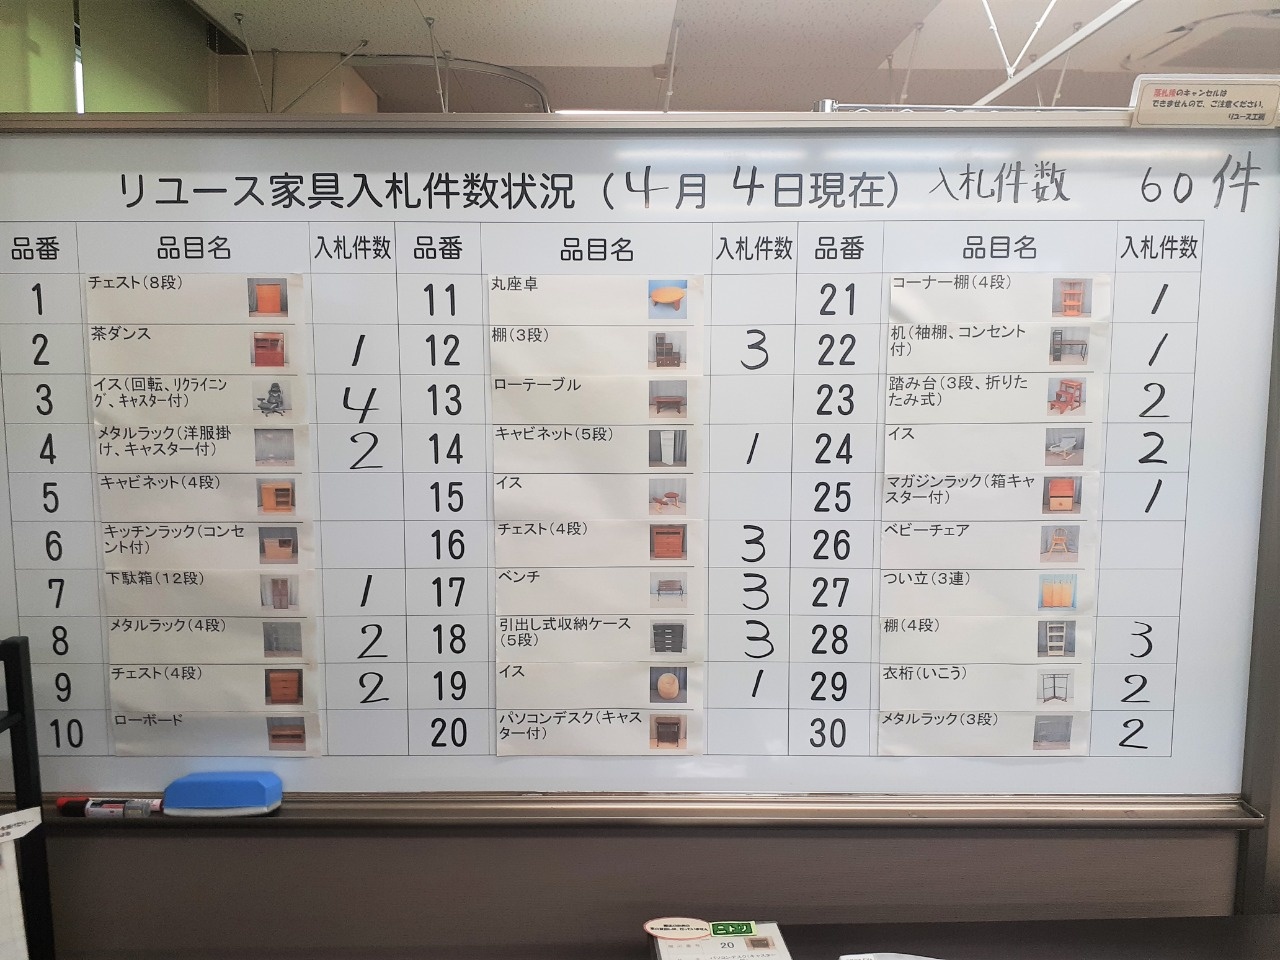 落札後のキャンセルは
できませんので、ご注意ください。
リユース工房
リユース家具入札件数状況（4月 4日現在） 入札件数 60件
品番 品目名 入札件数 品番 品目名 入札件数 品番 品目名 入札件数
1 チェスト(8段) 11 丸座卓 21 コーナー棚(4段) 1
2 茶ダンス 1 12 棚(3段) 3 22 机(袖棚、コンセント
付) 1
3 イス(回転、リクライニン
グ、キャスター付) 4 13 ローテーブル 23 踏み台(3段、折りた
たみ式) 2
4 メタルラック(洋服掛
け、キャスター付) 2 14 キャビネット(5段) 1 24 イス 2
5 キャビネット(4段) 15 イス 25 マガジンラック(箱キャ
スター付) 1
6 キッチンラック(コンセ
ント付) 16 チェスト(4段) 3 26 ベビーチェア
7 下駄箱(12段) 1 17 ベンチ 3 27 つい立(3連)
8 メタルラック(4段) 2 18 引出し式収納ケース
(5段) 3 28 棚(4段) 3
9 チェスト(4段) 2 19 イス 1 29 衣桁(いこう) 2
10 ローボード 20 パソコンデスク(キャス
ター付) 30 メタルラック(3段) 2
ニトリ
20